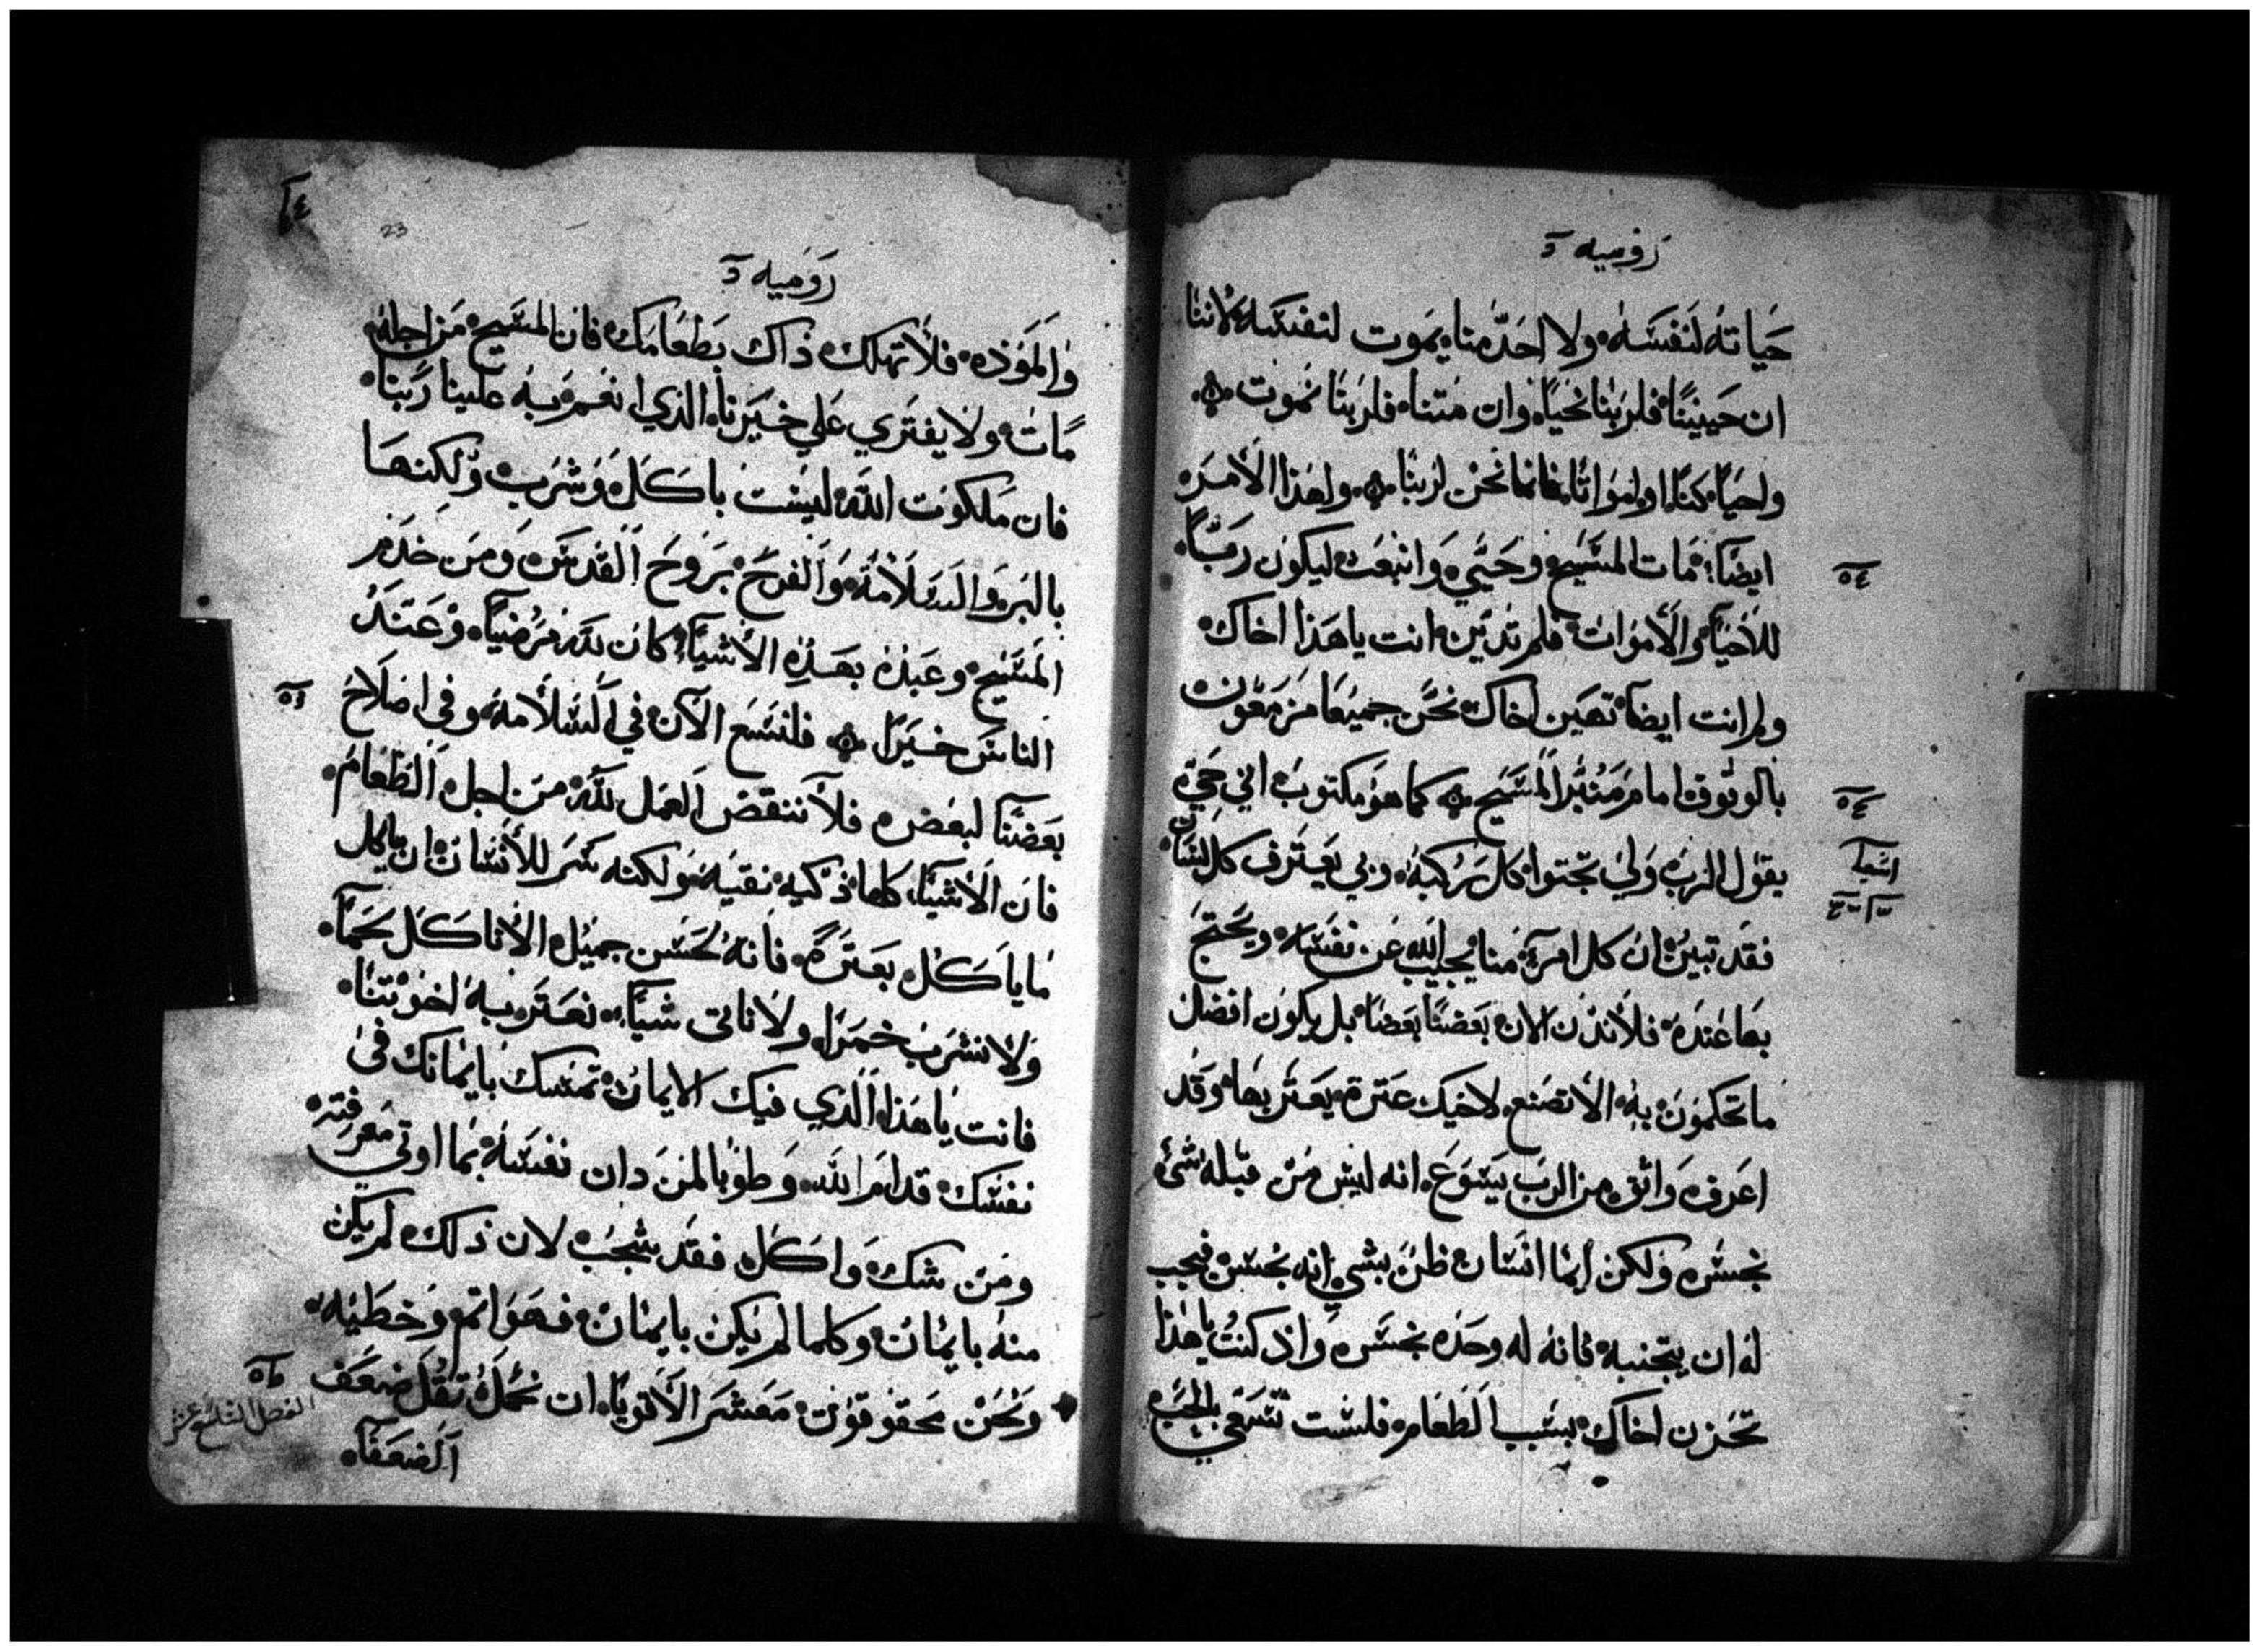 روميه
حياته لنفسه ولا احد منا يموت لنفسه لاننا
ان حيينا فلربنا نحيا وان متنا فلربنا نموت
واحيا كنا او امواتا فانما نحن لربنا ولهذا الامر
ايضا مات المسيح وحيي وانبعث ليكون ربا
٥٤
للاحيا والاموات فلم تدين انت يا هذا اخاك
ولم انت ايضا تهين اخاك نحن جميعا مزمعون
بالوقوف امام منبر المسيح كما هو مكتوب اني حي
يقول الرب ولي تجثوا كل ركبه وبي يعترف كل لسان
اشعيا
فقد تبين ان كل امرء منا يجيب الله عن نفسه ويحتج
بها عنده فلا ندن الان بعضنا بعضا بل يكون افضل
ما تحكمون به الا تصنع لاخيك عترة يعتر بها وقد
اعرف واثق من الرب يسوع انه ليس من قبله شئ
نجس ولكن ايما انسان ظن بشي انه نجس فيجب
له ان يتجنبه فانه له وحده نجس واذ كنت يا هذا
تحزن اخاك بسبب الطعام فلست تسعي بالحب
٤٦
23
روميه
والموده فلا تهلك ذاك بطعامك فان المسيح من اجله
مات ولا يفتري علي خيرنا الذي انعم به علينا ربنا
فان ملكوت الله ليست باكل وشرب ولكنها
بالبر والسلامه والفرح بروح القدس ومن خدم
المسيح وعبده بهذه الاشيا كان لله مرضيا وعند
الناس خيرا فلنسع الآن في السلامه وفي اصلاح
٥٦
بعضنا لبعض فلا ننقض العمل لله من اجل الطعام
فان الاشيا كلها ذكيه نقيه ولكنه شر للانسان ان ياكل
ما ياكل بعترة فانه لحسن جميل الا ناكل لحما
ولا نشرب خمرا ولا ناتى شيا نعتر به اخوتنا
فانت يا هذا الذي فيك الايمان تمسك بايمانك في
نفسك قدام الله وطوبا لمن دان نفسه بما اوتي معرفته
ومن شك واكل فقد شجب لان ذلك لم يكن
منه بايمان وكلما لم يكن بايمان فهو اثم وخطيه
ونحن محقوقون معشر الاقويا ان نحمل ثقل ضعف
الضعفا